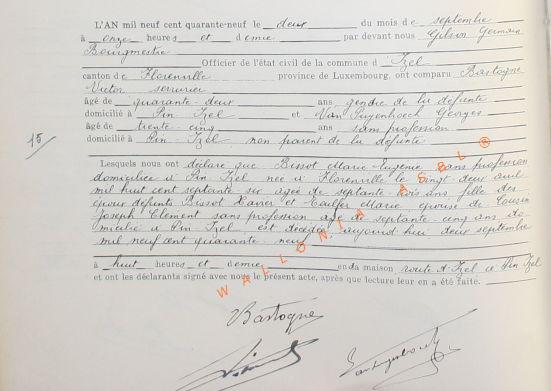 L'AN mil neuf cent quarante-neuf le deux du mois de septembre
à onze heures et demie par devant nous Gilson Germain
Bourgmestre
Officier de l'état civil de la commune d Izel
canton de Florenville province de Luxembourg, ont comparu Bastogne
Victor serrurier
âgé de quarante-deux ans gendre de la défunte
domicilié à Pin Izel et Van Puyenbroeck Georges
âgé de trente cinq ans sans profession
domicilié à Pin-Izel, non parent de la défunte
15
Lesquels nous ont déclaré que Bissot Marie Eugénie sans profession
domiciliée à Pin Izel née à Florenville le vingt deux avril
mil huit cent septante six agée de septante-trois ans fille des
époux défunts Bissot Xavier et Marie épouse de Cousin
Joseph Clément sans profession agé de septante cinq ans do-
micilié à Pin Izel est décédée aujourd'hui deux septembre
mil neuf cent quarante neuf
à huit heures et demie en sa maison route d'Izel à Pin Izel
et ont les déclarants signé avec nous le présent acte, après que lecture leur en a été faite.
WALLONIA ASBL ®
Bastogne